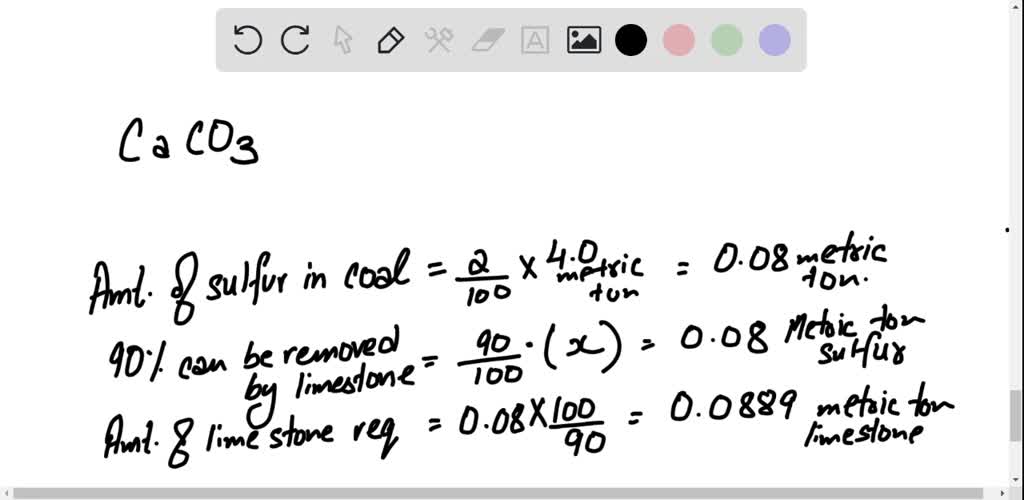 CaCO3
Amt. of sulfur in coal = 2/100 × 4.0 metric ton = 0.08 metric ton.
90% can be removed by limestone = 90/100 · (x) = 0.08 Metric ton sulfur
Amt. of lime stone req = 0.08 × 100/90 = 0.0889 metric ton limestone